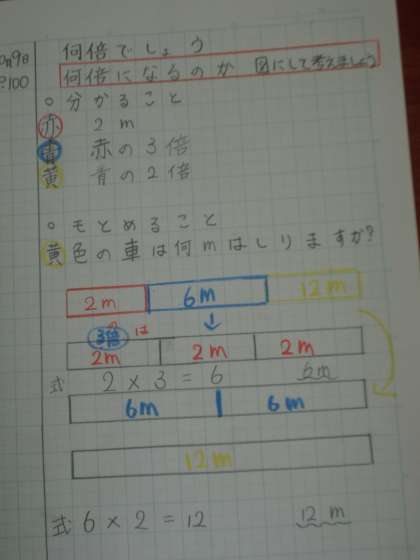 何倍でしょう
何倍になるのか 図にして考えましょう
P100
○分かること
赤 2m
青 赤の3倍
黄 青の2倍
○モとめること
黄色の車は何mはしりますか?
2m 6m 12m
の は
3倍
2m 2m 2m
式 2×3=6 6m
6m 6m
12m
式 6×2=12 12m